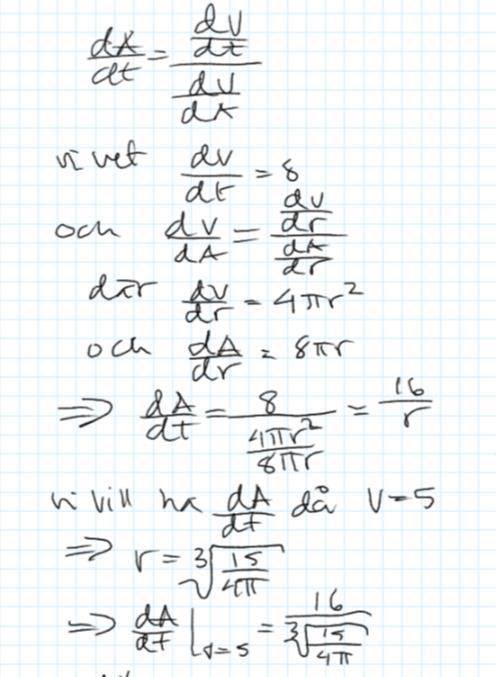 dA/dt = (dV/dt)/(dV/dA)
vi vet dV/dt = 8
och dV/dA = (dV/dr)/(dA/dr)
där dV/dr = 4πr²
och dA/dr = 8πr
⇒ dA/dt = 8/(4πr²/8πr) = 16/r
vi vill ha dA/dt då V=5
⇒ r = ∛(15/4π)
⇒ dA/dt |V=5 = 16/∛(15/4π)